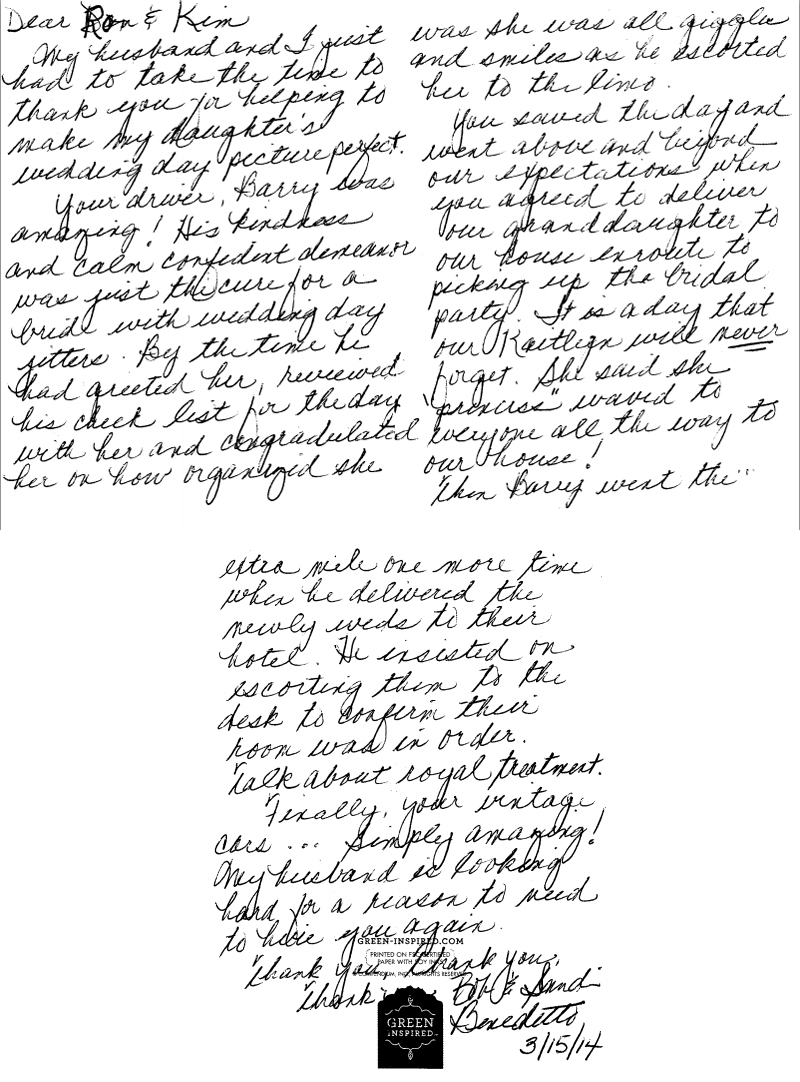 Dear Ron & Kim
My husband and I just
had to take the time to
thank you for helping to
make my daughter's
wedding day picture perfect.
Your driver, Barry was
amazing! His kindness
and calm confident demeanor
was just the cure for a
bride with wedding day
jitters. By the time he
had greeted her, reviewed
his check list for the day
with her and congradulated
her on how organized she
was she was all giggles
and smiles as he escorted
her to the limo.
You saved the day and
went above and beyond
our expectations when
you agreed to deliver
our granddaughter to
our house enroute to
picking up the bridal
party. It is a day that
our Kaitlyn will never
forget. She said she
"princess" waved to
everyone all the way to
our house!
Then Barry went the
extra mile one more time
when he delivered the
newly weds to their
hotel. He insisted on
escorting them to the
desk to confirm their
room was in order.
Talk about royal treatment.
Finally, your vintage
cars ... Simply amazing!
My husband is looking
hard for a reason to need
to hire you again.
GREEN-INSPIRED.COM
Thank you, thank you,
PAPER WITH SOY INKS
thank
Bob & Sandi
Benedetto
GREEN
INSPIRED
3/15/14